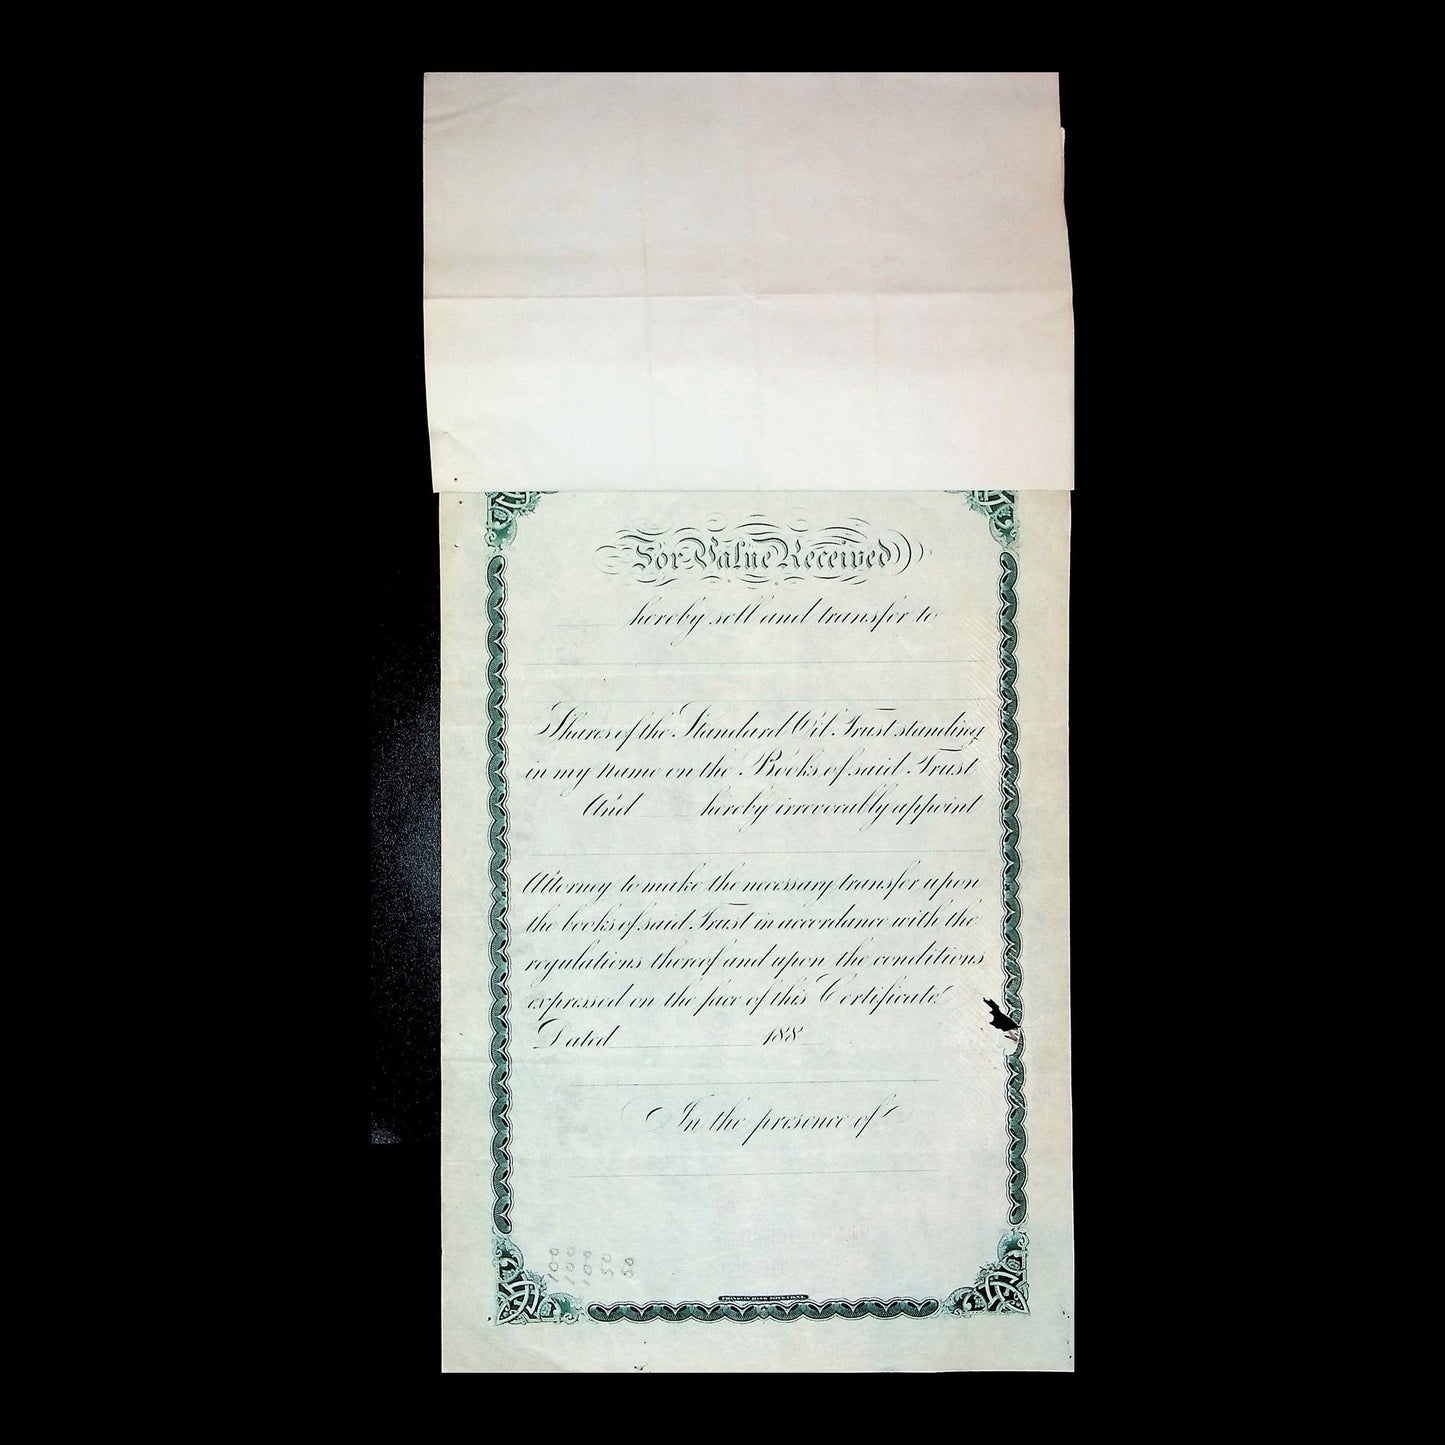 For Value Received
hereby sell and transfer to
Shares of the Standard Oil Trust standing
in my name on the Books of said Trust
And hereby irrevocably appoint
Attorney to make the necessary transfer upon
the books of said Trust in accordance with the
regulations thereof and upon the conditions
expressed on the face of this Certificate.
Dated 188
In the presence of
100
100
100
50
50
FRANKLIN BANK NOTE CO. N.Y.